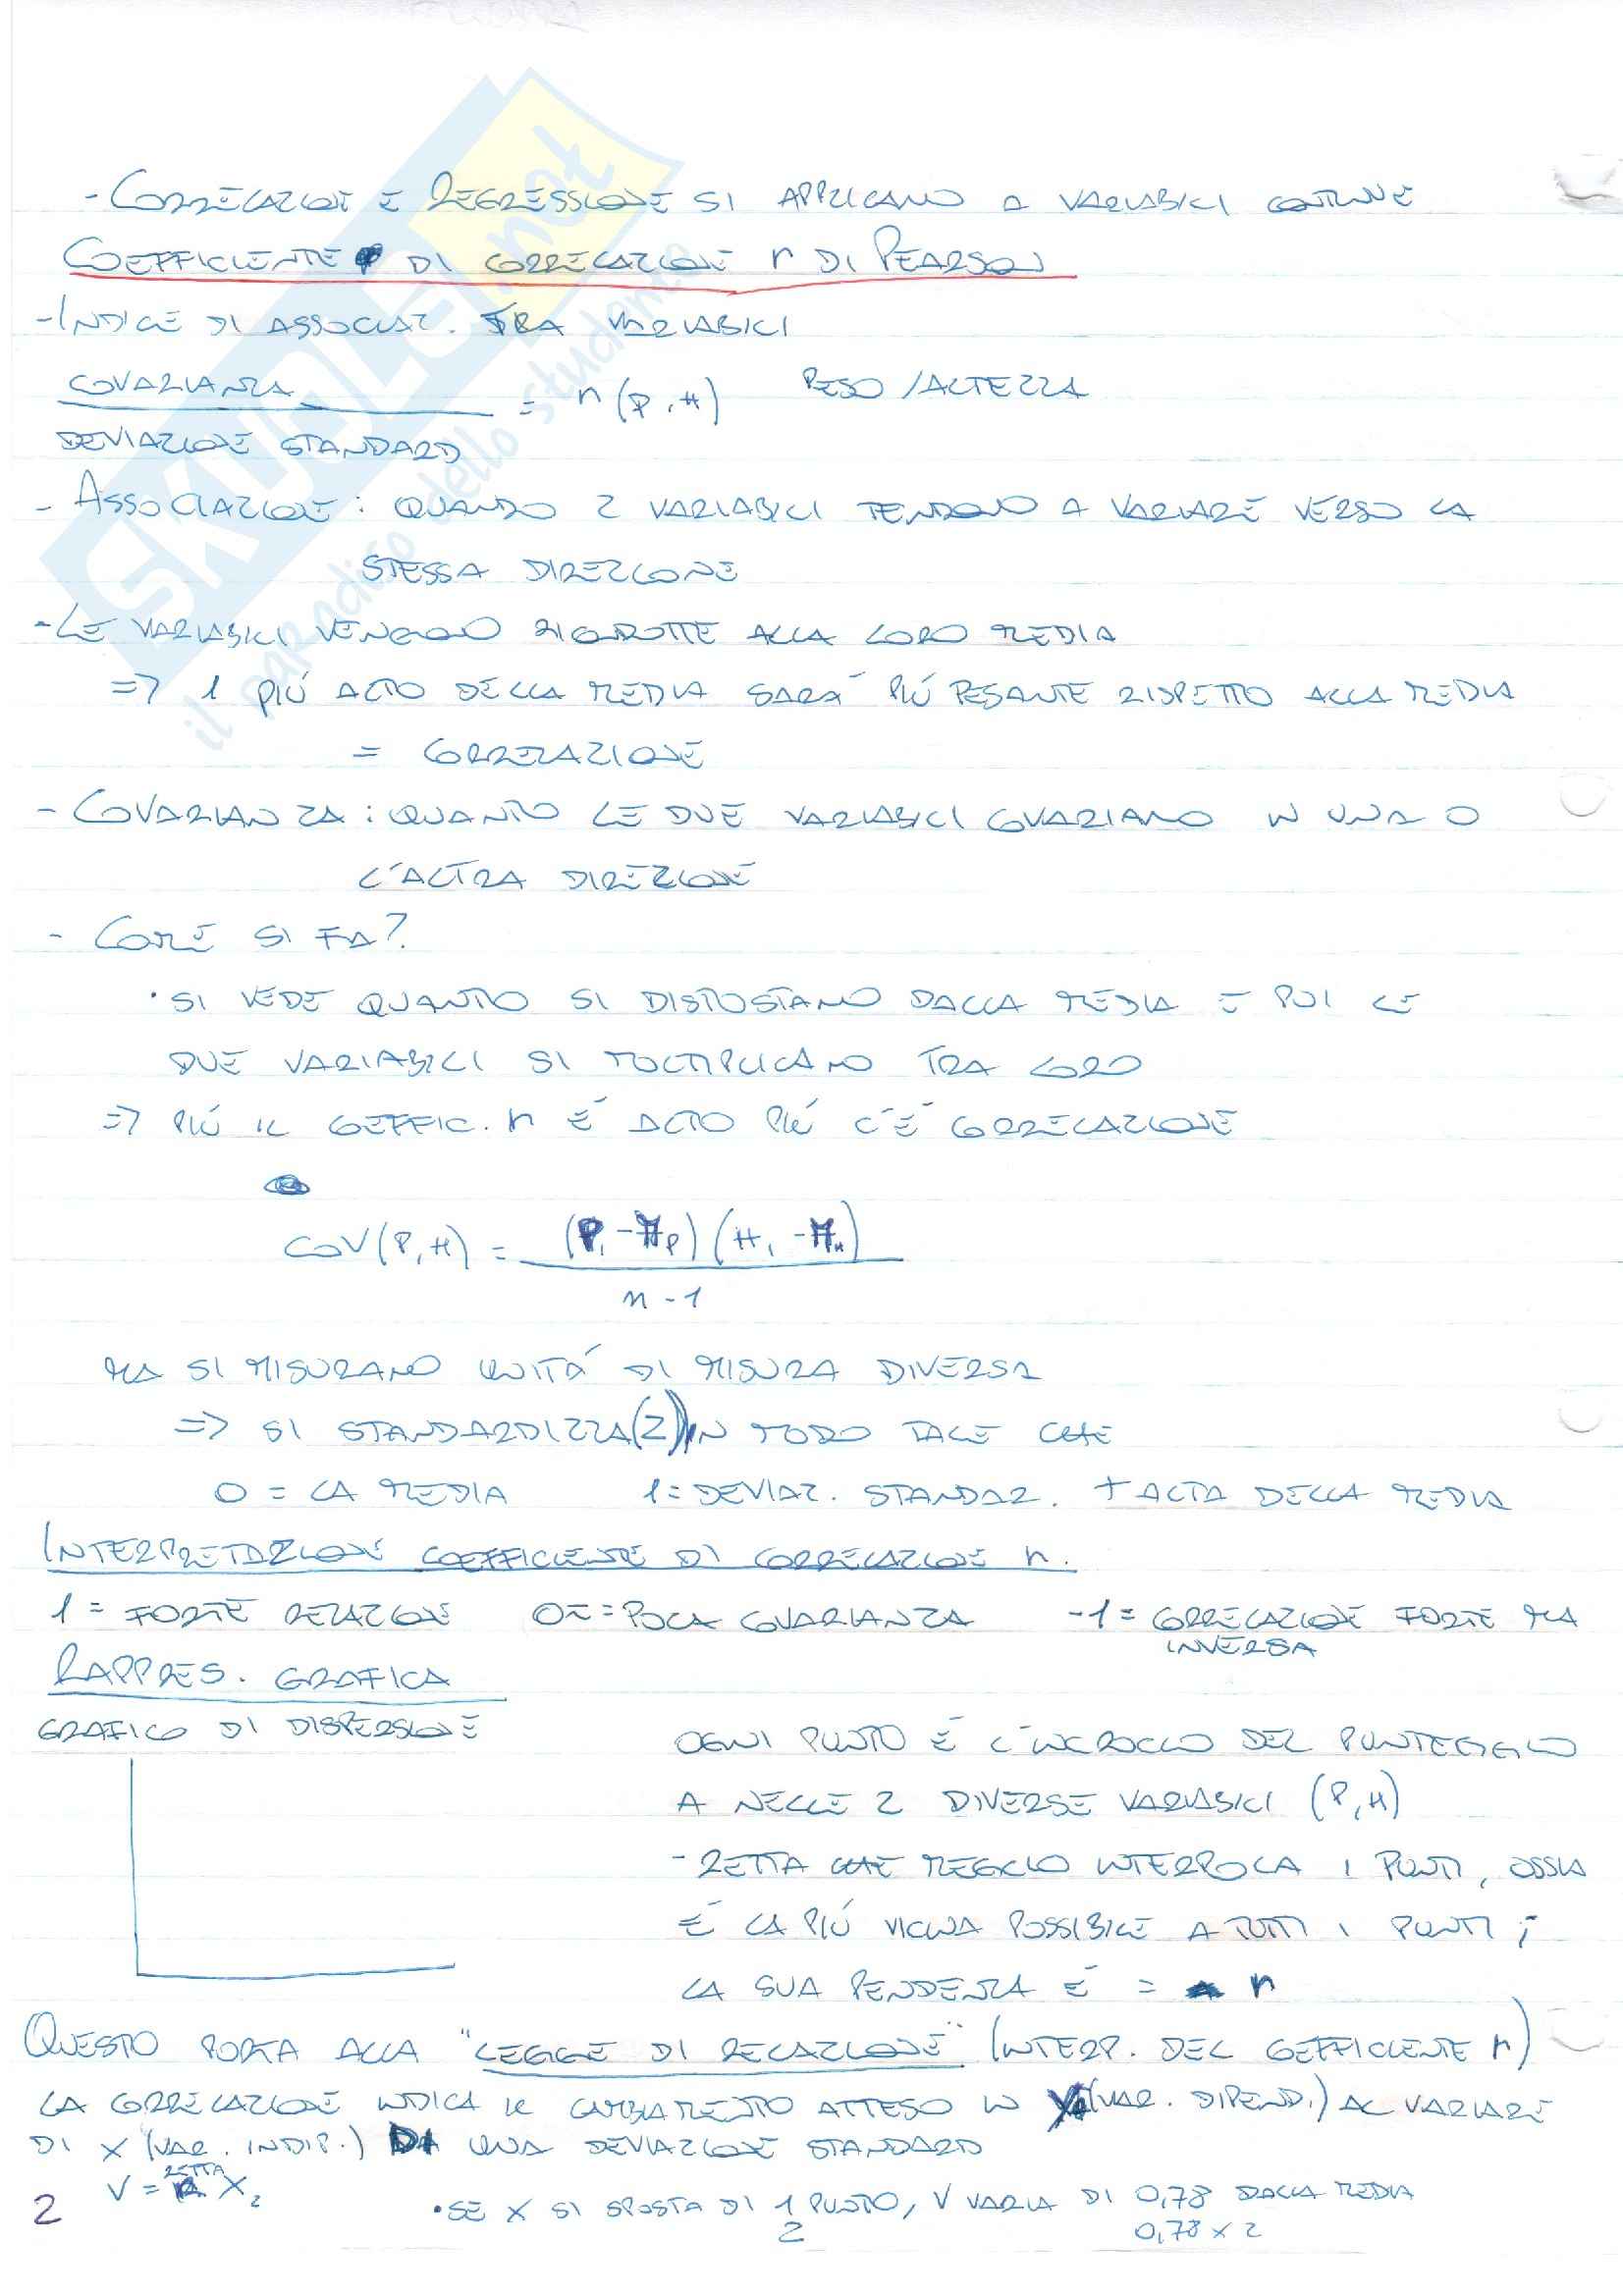 - CORRELAZIONE E REGRESSIONE SI APPLICANO A VARIABILI CONTINUE
COEFFICIENTE DI CORRELAZIONE r DI PEARSON
- INDICE DI ASSOCIAZ. TRA VARIABILI
COVARIANZA = r (P, H) PESO / ALTEZZA
DEVIAZIONE STANDARD
- ASSOCIAZIONE : QUANDO 2 VARIABILI TENDONO A VARIARE VERSO LA
STESSA DIREZIONE
- LE VARIABILI VENGONO RICONDOTTE ALLA LORO MEDIA
=> 1 PIÚ ALTO DELLA MEDIA SARÁ PIÚ PESANTE RISPETTO ALLA MEDIA
= CORRELAZIONE
- COVARIANZA : QUANTO LE DUE VARIABILI COVARIANO IN UNA O
L'ALTRA DIREZIONE
- COME SI FA?
• SI VEDE QUANTO SI DISTOSTANO DALLA MEDIA E POI LE
DUE VARIABILI SI MOLTIPLICANO TRA LORO
=> PIÚ IL COEFFIC. r É ALTO PIÚ C'É CORRELAZIONE
COV (P, H) = (P₁ - M_P) (H₁ - M_H)
n - 1
MA SI MISURANO UNITÁ DI MISURA DIVERSA
=> SI STANDARDIZZA (Z) IN MODO TALE CHE
0 = LA MEDIA 1 = DEVIAZ. STANDAR. + ALTA DELLA MEDIA
INTERPRETAZIONE COEFFICIENTE DI CORRELAZIONE r.
1 = FORTE RELAZIONE 0 ~ = POCA COVARIANZA -1 = CORRELAZIONE FORTE MA
INVERSA
RAPPRES. GRAFICA
GRAFICO DI DISPERSIONE
OGNI PUNTO É L'INCROCIO DEL PUNTEGGIO
A NELLE 2 DIVERSE VARIABILI (P, H)
- RETTA CHE MEGLIO INTERPOLA I PUNTI, OSSIA
É LA PIÚ VICINA POSSIBILE A TUTTI I PUNTI ;
LA SUA PENDENZA É = r
QUESTO PORTA ALLA "LEGGE DI RELAZIONE" (INTERP. DEL COEFFICIENTE r)
LA CORRELAZIONE INDICA IL CAMBIAMENTO ATTESO IN Y (VAR. DIPEND.) AL VARIARE
DI X (VAR. INDIP.) DI UNA DEVIAZIONE STANDARD
RETTA
V = X₂
• SE X SI SPOSTA DI 1 PUNTO, V VARIA DI 0,78 DALLA MEDIA
2 0,78 x 2
2
SKUOLA.net
il paradiso dello studente